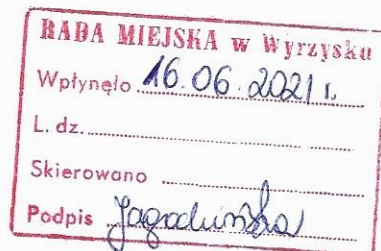 RADA MIEJSKA w Wyrzysku
Wpłynęło 16.06.2021 r.
L. dz.
Skierowano
Podpis Jagodzińska